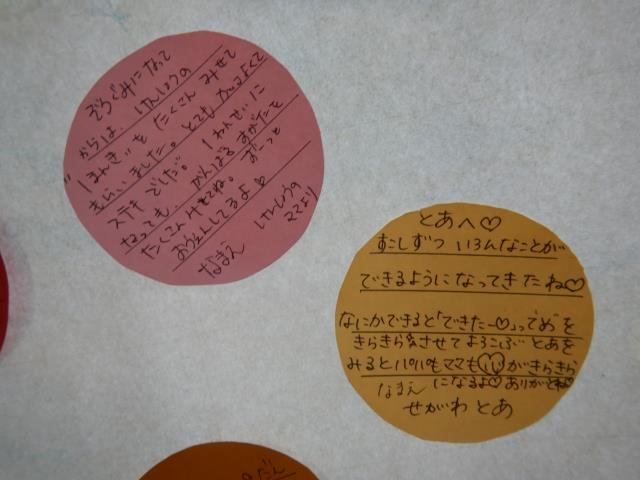 ぞうぐみになって
からは、けんしょうの
"1まんき"を たくさん みせて
もらいました。とても かっこよくて
ステキ でした。1ねんせいに
なっても、がんばる すがたを
たくさんみせてね。ずーっと
おうえんしてるよ♡
なまえ けんしょうの
ママより
とあへ♡
すこしずつ いろんなことが
できるようになってきたね♡
なにかできると「できたー♡」って めを
きらきらさせて よろこぶ とあを
みるとパパもママも心がきらきら
になるよ♡ ありがとね♡
なまえ
せがわ とあ
だん